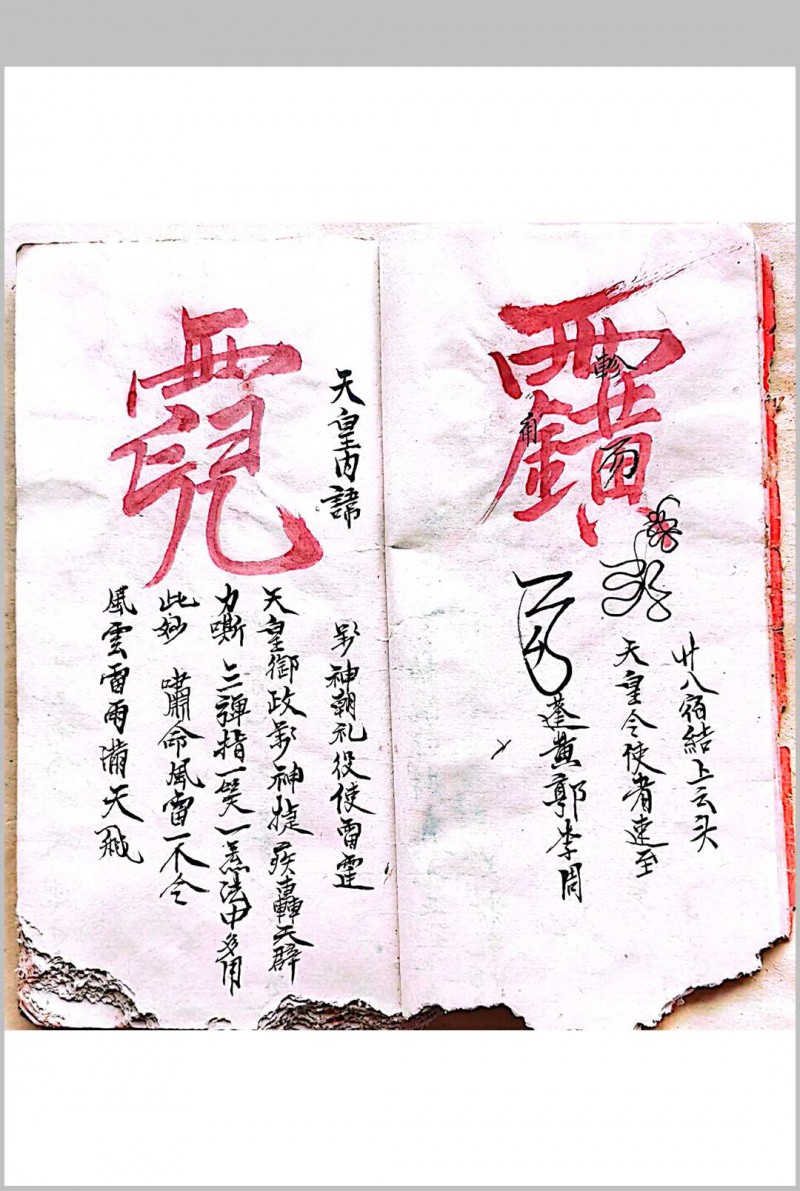 軫
角
廿八宿結上云头
天皇令使者速至
蓬黄郭李周
天皇内諱
影神朝礼役使雷霆
天皇御政影神捷疾轟天辟
力嘶 三弹指一笑一 法中多用
此 嘯命風雷一不令
風雲雷雨满天飛